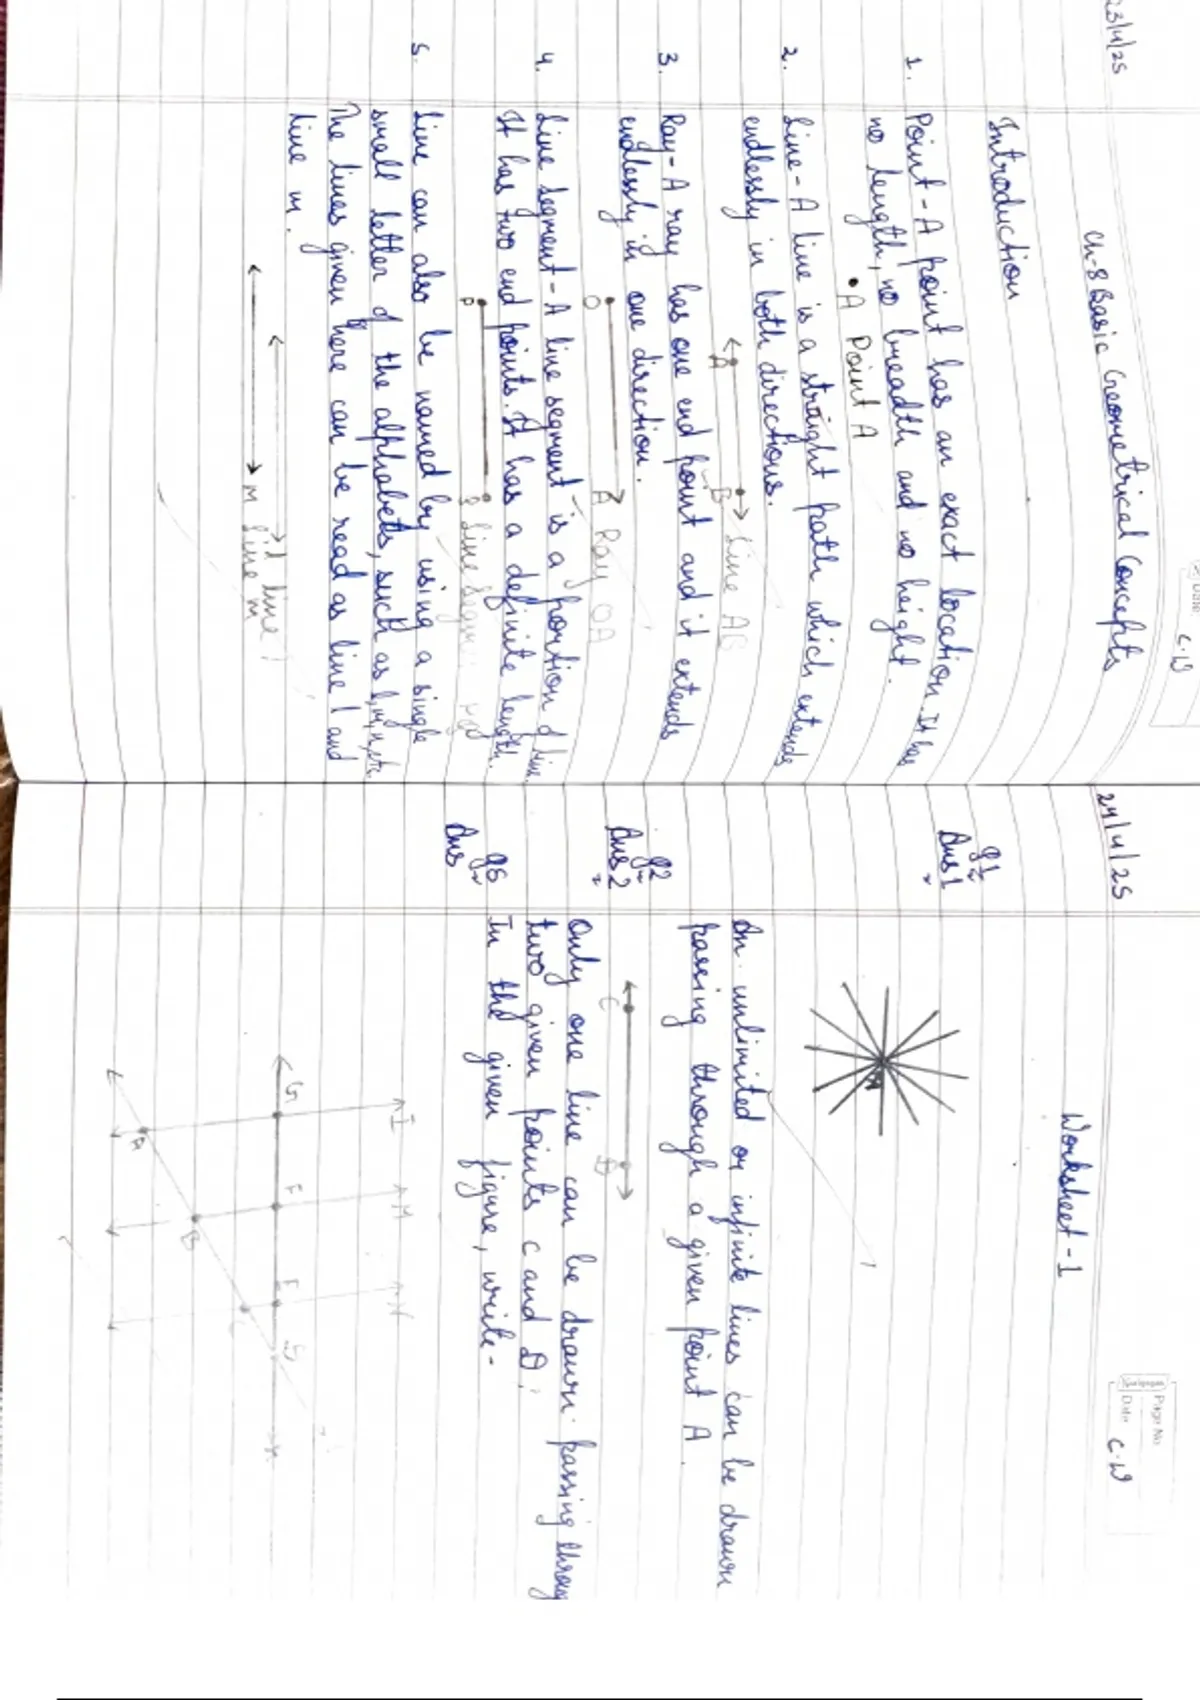 23/4/25
Date C.W
Ch-8 Basic Geometrical Concepts
Introduction
1. Point - A point has an exact location. It has
no length, no breadth and no height.
A Point A
2. Line - A line is a straight path which extends
endlessly in both directions.
A B Line AB
3. Ray - A ray has one end point and it extends
endlessly in one direction.
O A Ray OA
4. Line segment - A line segment is a portion of line.
It has two end points. It has a definite length.
P Line
5. Line can also be named by using a single
small letter of the alphabets, such as l, m, n, etc.
The lines given here can be read as line l and
line m.
l line l
M line m
Page No.
24/4/25
Date C.W
Worksheet - 1
Q1
Ans1
A
An unlimited or infinite lines can be drawn
passing through a given point A.
Q2
Ans2
C D
Only one line can be drawn passing throug
two given points C and D.
Q6 In the given figure, write -
Ans
I M N
G F E D
A B C